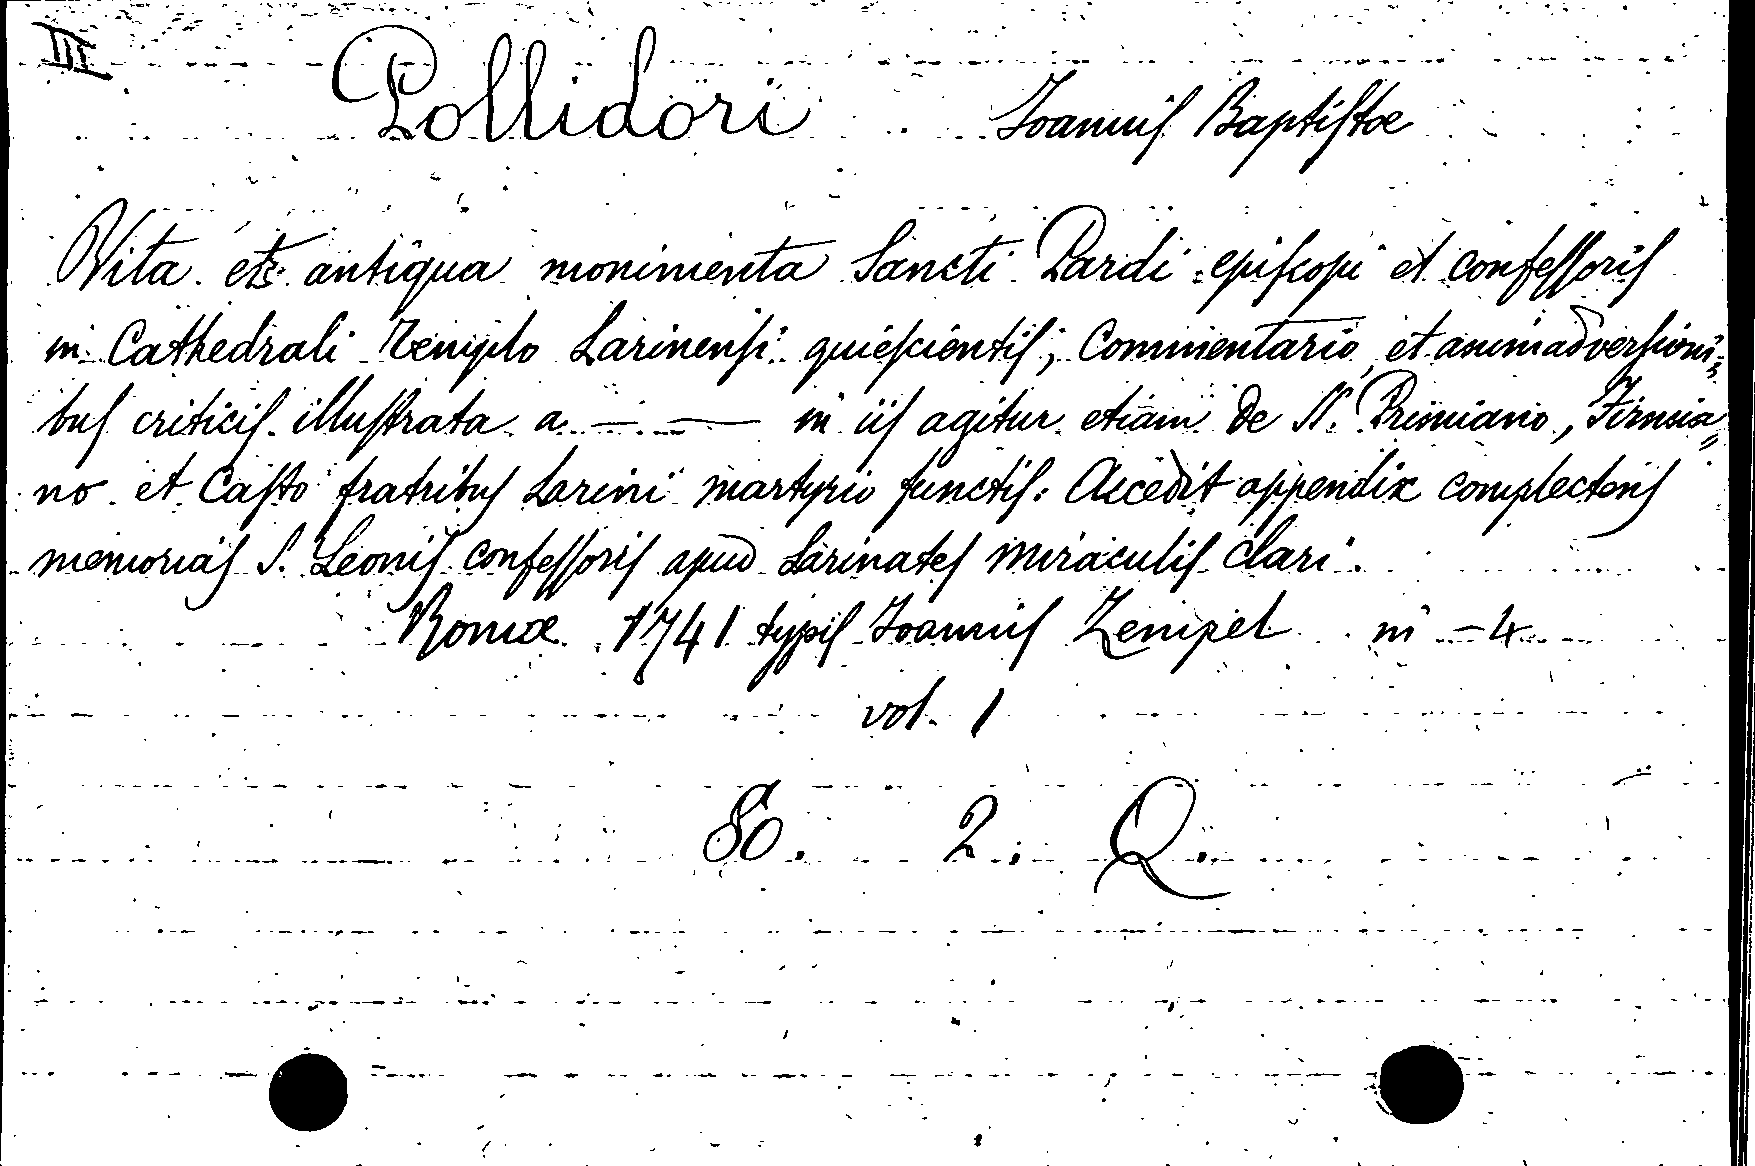 III
Pollidori Joannis Baptistæ
Vita et antiqua monimenta Sancti Pardi episcopi et confessoris
in Cathedrali Templo Larinensi quiescientis; Commentario et animadversioni=
bus criticis illustrata a — — in iis agitur etiam de SS. Primiano, Firmia=
no et Casto fratribus Larini martyrio functis. Accedit appendix complectens
memorias S. Leonis confessoris apud Larinates miraculis clari.
Romæ 1741 typis Joannis Zempel in-4
vol. 1
80. 2. Q.